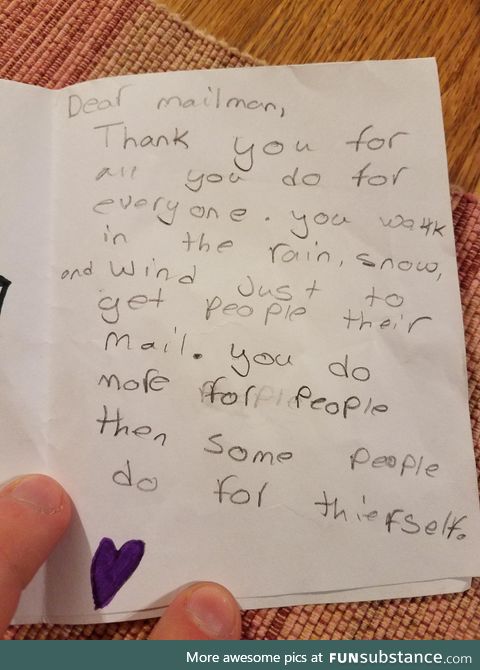 Dear mailman,
Thank you for
all you do for
everyone. you walk
in the rain, snow,
and wind just to
get people their
mail. you do
more for people
then some people
do for thierfself.
More awesome pics at FUNsubstance.com